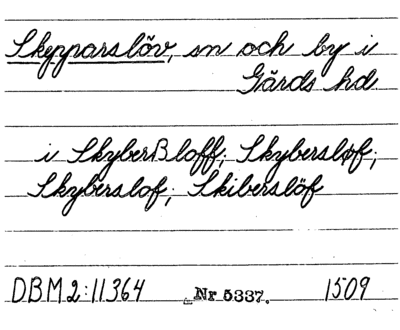 Skepparslöv, sn och by i
Gärds hd.
i Skyberßloff; Skybersløf;
Skyberslof; Skiberslöf
DBM2:11364 Nr 5337. 1509